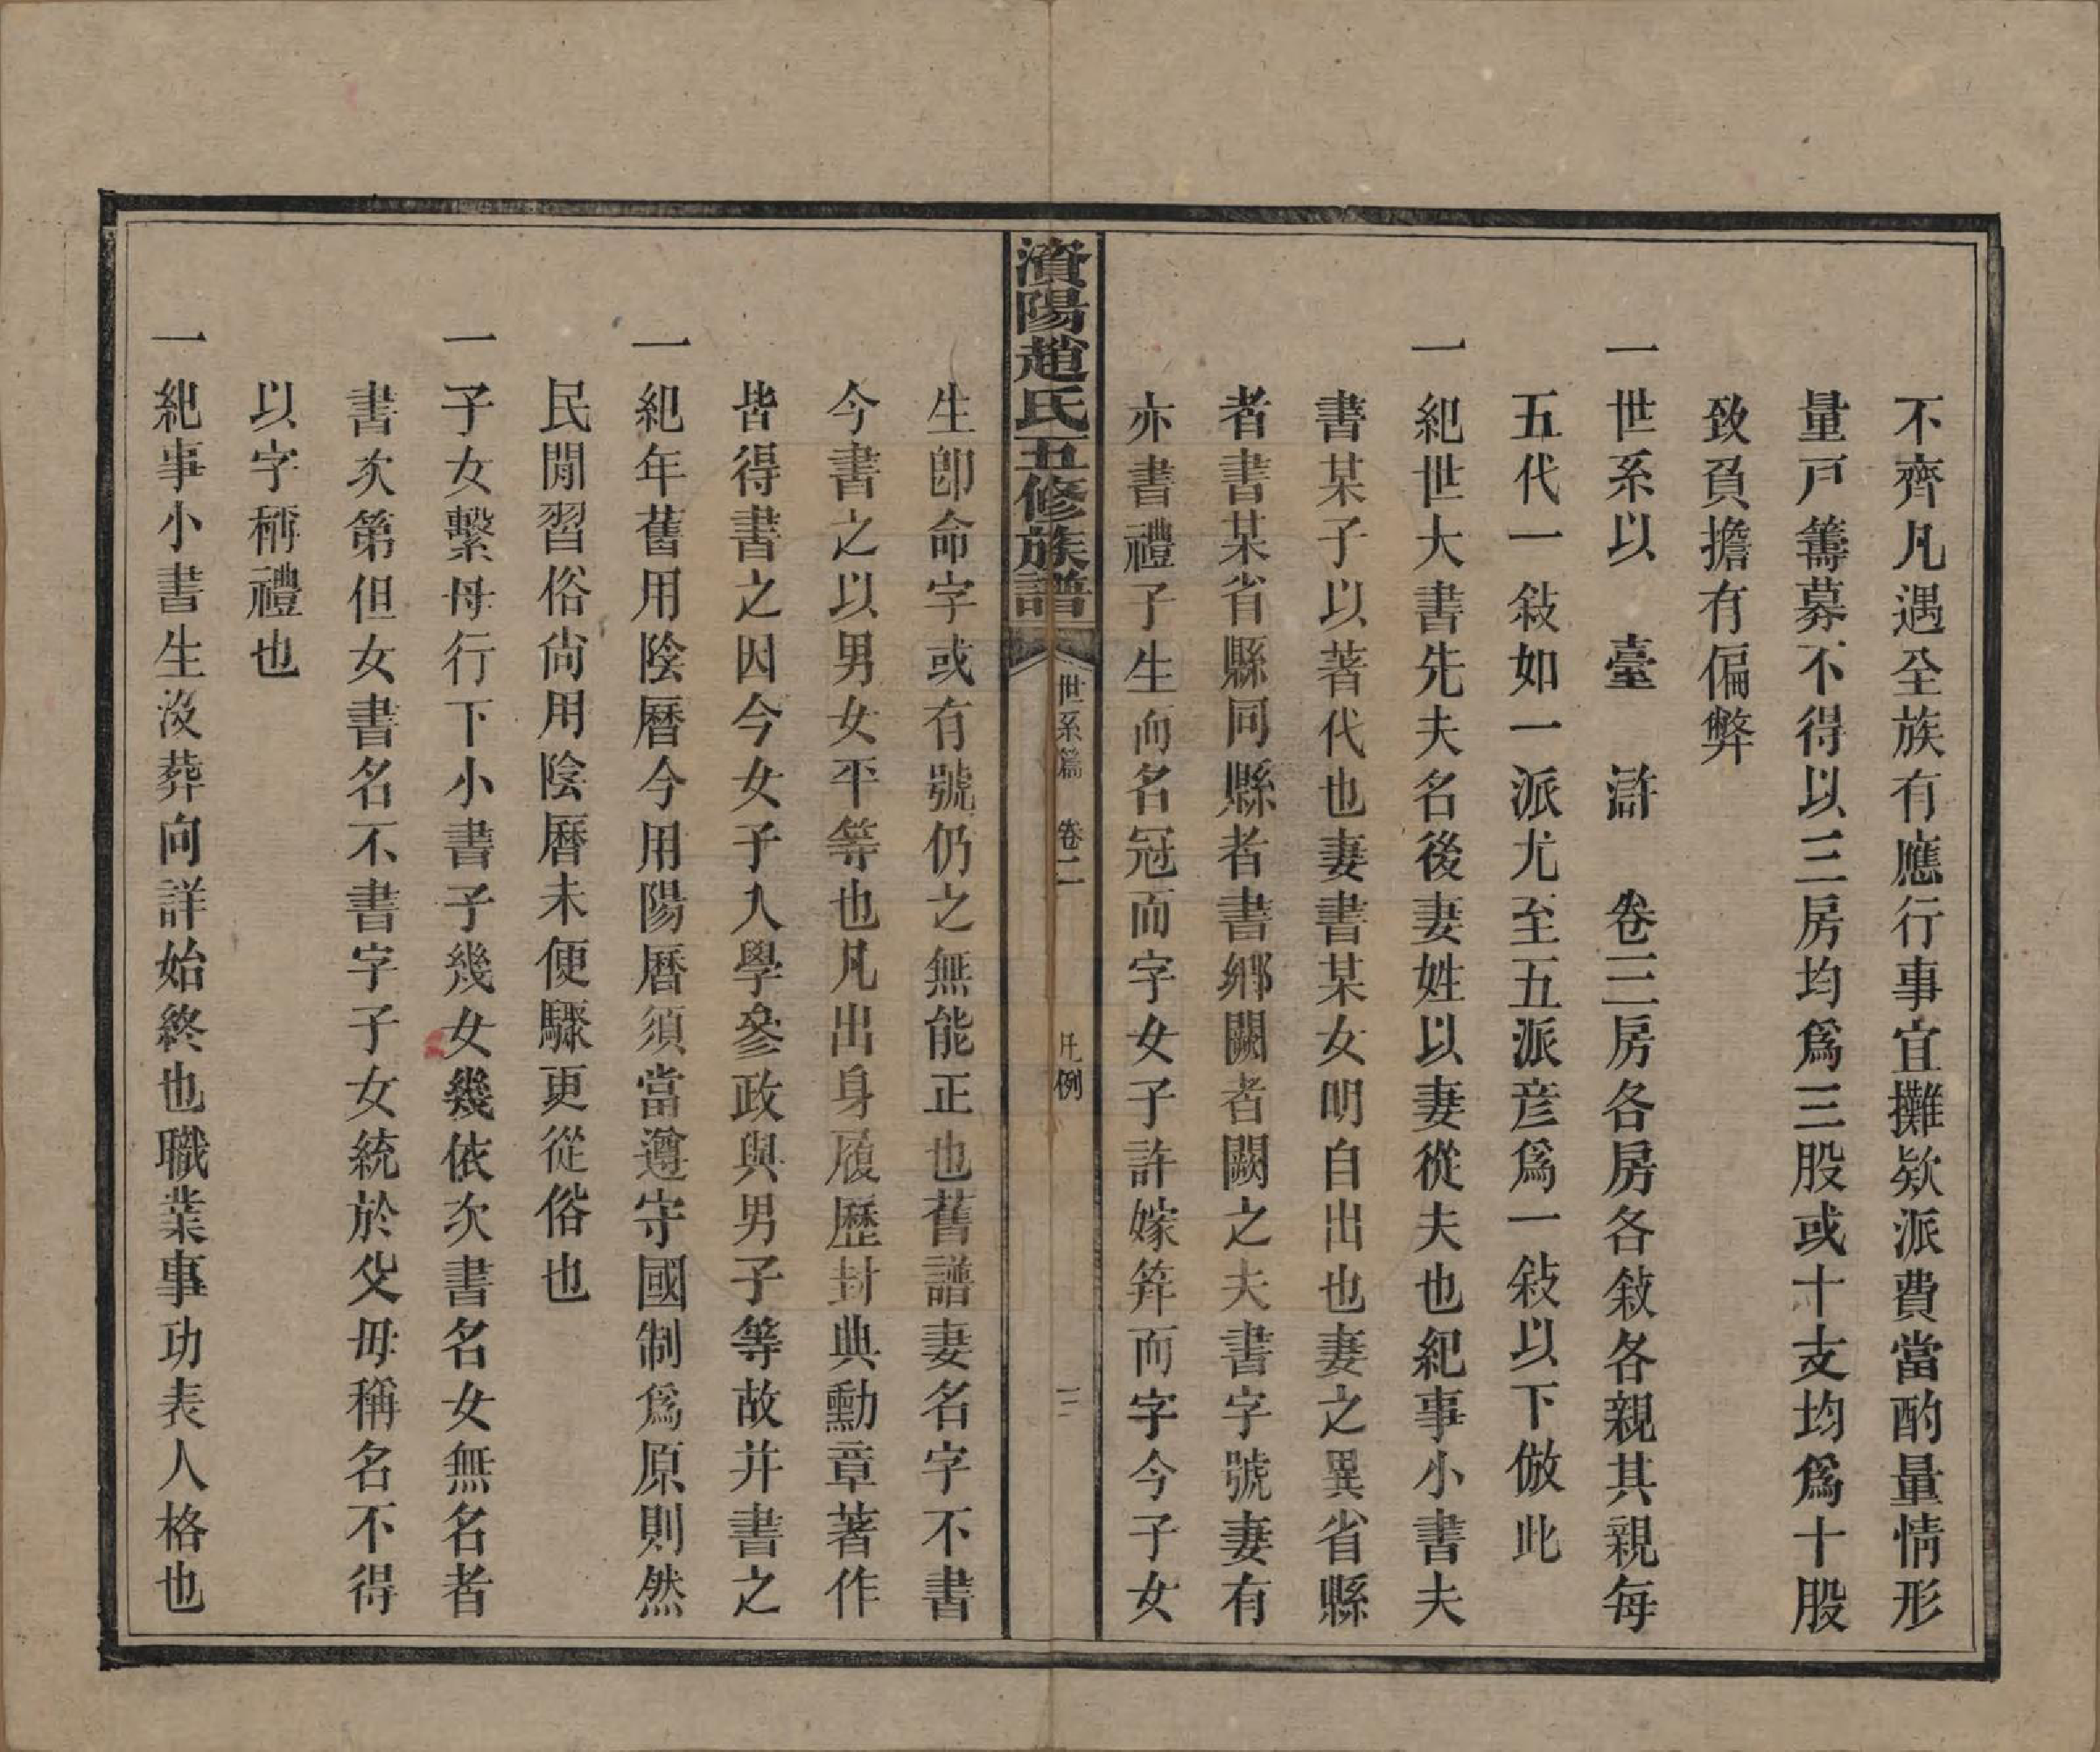 不齊凡遇全族有應行事宜攤欵派費當酌量情形
量戸籌募不得以三房均爲三股或十支均爲十股
致負擔有偏弊
一世系以 臺 滸 卷三房各房各敍各親其親每
五代一敍如一派尤至五派彦爲一敍以下倣此
一紀世大書先夫名後妻姓以妻從夫也紀事小書夫
書某子以著代也妻書某女明自出也妻之異省縣
者書某省縣同縣者書鄉闕者闕之夫書字號妻有
亦書禮子生而名冠而字女子許嫁笄而字今子女
濱陽趙氏五修族譜 世系篇 卷二 凡例 二
生卽命字或有號仍之無能正也舊譜妻名字不書
今書之以男女平等也凡出身履歷封典勳章著作
皆得書之因今女子入學參政與男子等故并書之
一紀年舊用陰曆今用陽曆須當遵守國制爲原則然
民間習俗尙用陰曆未便驟更從俗也
一子女繫母行下小書子幾女幾依次書名女無名者
書次第但女書名不書字子女統於父母稱名不得
以字稱禮也
一紀事小書生沒葬向詳始終也職業事功表人格也